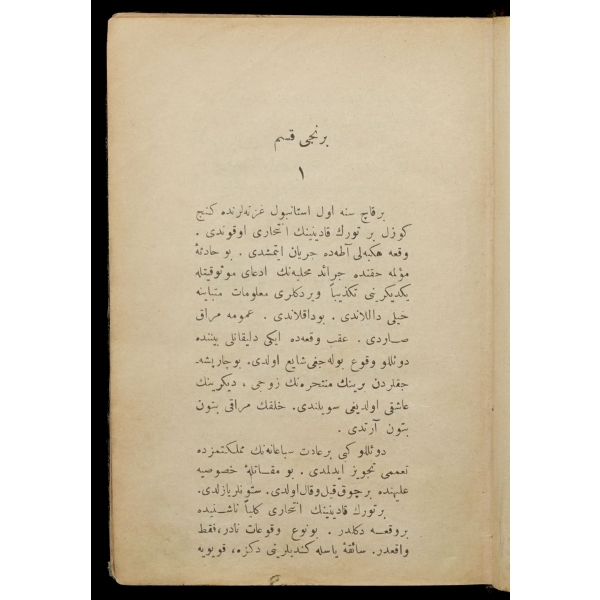 برنجی قسم
١
برقاچ سنه اول استانبول غزته‌لرنده كنج
كوزل بر تورك قادینینك انتحاری اوقوندی .
وقعه هكبه‌لی آطه‌ده جریان ایتمشدی . بو حادثهٔ
مؤلمه حقنده جرائد محلیه‌نك ادعای موثوقیتله
یكدیكرینی تكذیباً ویردكلری معلومات متباینه
خیلی داللاندی . بوداقلاندی . عمومه مراق
صاردی . عقب وقعه‌ده ایكی دلیقانلی بیننده
دوئللو وقوع بوله‌جغی شایع اولدی. بو چارپیشه‌
جقلردن برینك منتحره‌نك زوجی ، دیكرینك
عاشقی اولدیغی سویلندی. خلقك مراقی بتون
بتون آرتدی .
دوئللو كبی برعادت سباعانه‌نك مملكتمزده
تعممی تجویز ایدلمدی . بو مقاتلهٔ خصوصیه
علیهنده برچوق قیل وقال اولدی. ستونلر یازلدی.
برتورك قادینینك انتحاری كلیاً ناشنیده
بروقعه دكلدر . بونوع وقوعات نادر، فقط
واقعدر. سائقهٔ یأسله كندیلرینی دكزه، قویویه